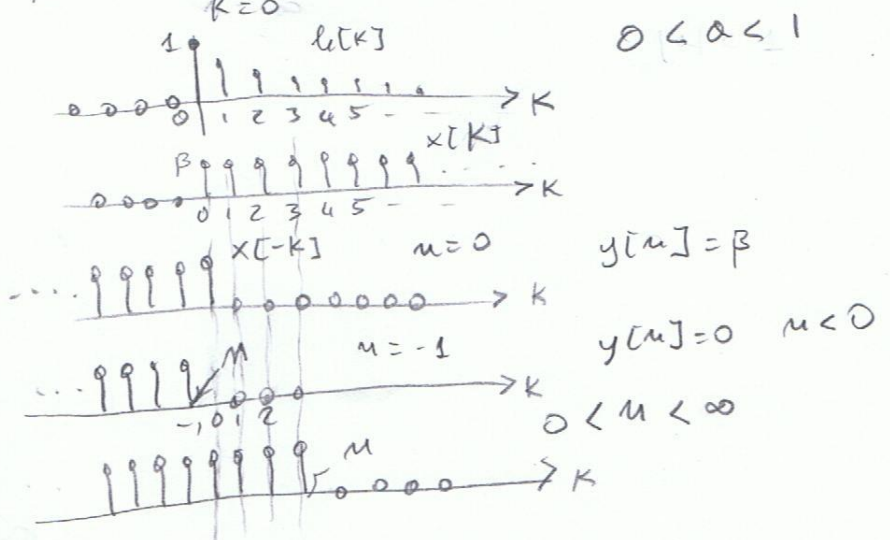 K=0
1 h[K] 0 < a < 1
0 1 2 3 4 5 - - K
β x[K]
0 1 2 3 4 5 - - K
x[-K] n=0 y[n]=β
K
n n=-1 y[n]=0 n<0
-1 0 1 2 K
0 < n < ∞
n
K